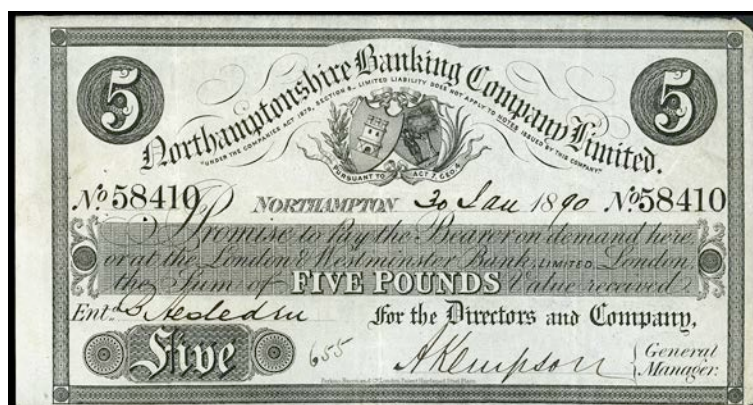 5 5
Northamptonshire Banking Company Limited.
"UNDER THE COMPANIES ACT 1879, SECTION 6, LIMITED LIABILITY DOES NOT APPLY TO NOTES ISSUED BY THIS COMPANY"
PURSUANT TO ACT 7. GEO. 4.
No 58410 No 58410
NORTHAMPTON 30 Jan 1890
I Promise to Pay the Bearer on demand here,
or at the London & Westminster Bank, LIMITED, London
the Sum of FIVE POUNDS Value received.
Entd
For the Directors and Company,
Five 655 A Kempson General Manager.
Perkins, Bacon and Co London Patent Hardened Steel Plate